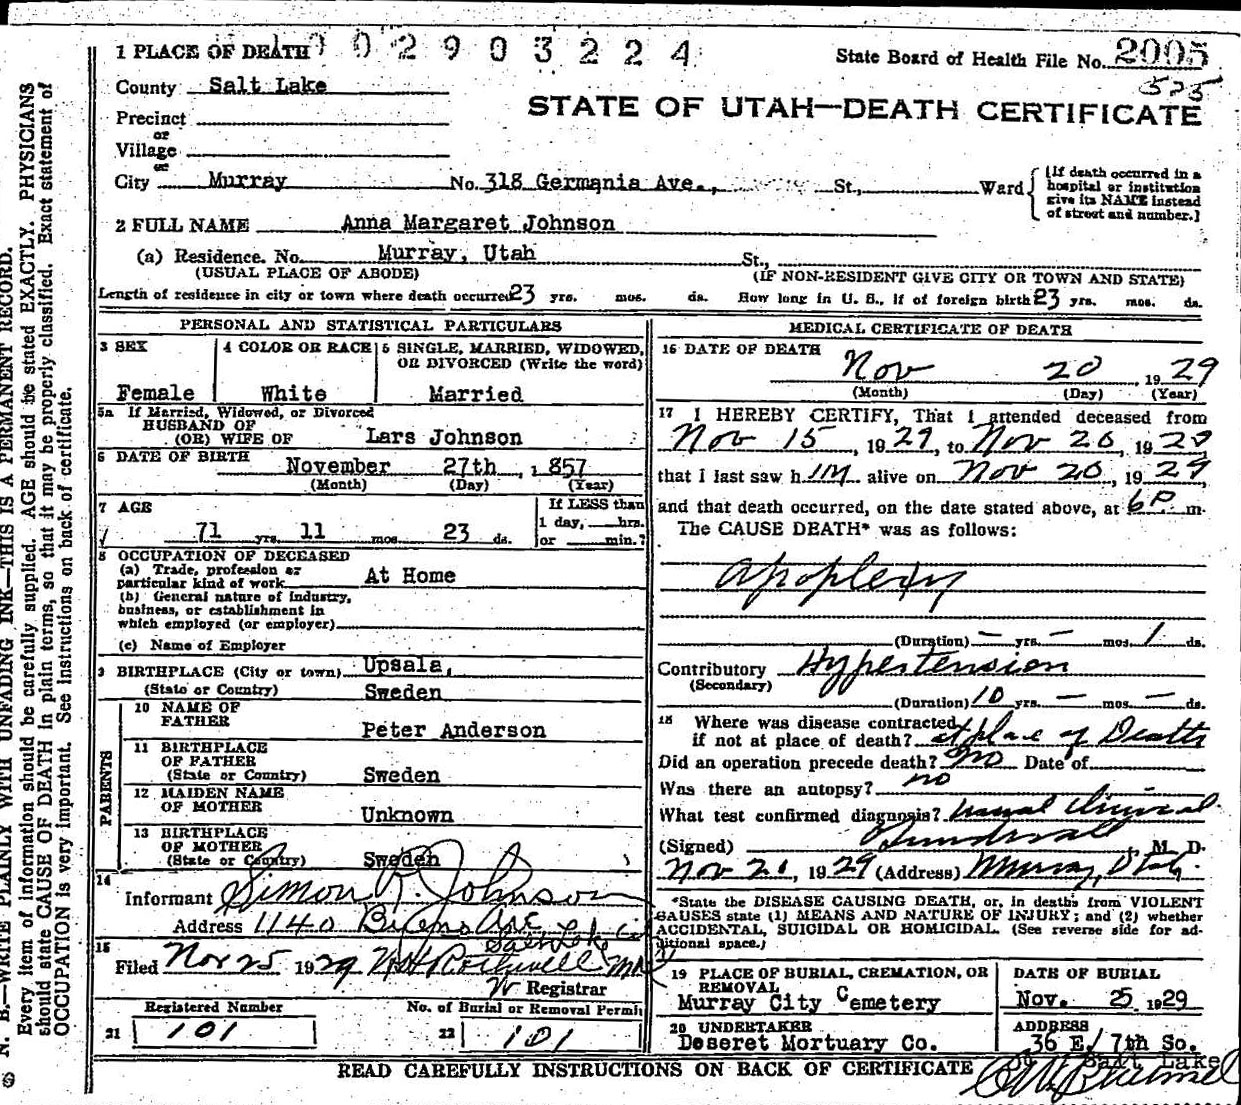 N. B.—WRITE PLAINLY WITH UNFADING INK—THIS IS A PERMANENT RECORD.
Every item of information should be carefully supplied. AGE should be stated EXACTLY. PHYSICIANS
should state CAUSE OF DEATH in plain terms, so that it may be properly classified. Exact statement of
OCCUPATION is very important. See instructions on back of certificate.
1 PLACE OF DEATH 002903224
State Board of Health File No. 2005
525
County Salt Lake
STATE OF UTAH—DEATH CERTIFICATE
Precinct
or
Village
or
City Murray No. 318 Germania Ave., St., Ward
[If death occurred in a
hospital or institution
give its NAME instead
of street and number.]
2 FULL NAME Anna Margaret Johnson
(a) Residence. No. Murray, Utah St.,
(USUAL PLACE OF ABODE) (IF NON-RESIDENT GIVE CITY OR TOWN AND STATE)
Length of residence in city or town where death occurred 23 yrs. mos. ds. How long in U. S., if of foreign birth 23 yrs. mos. ds.
PERSONAL AND STATISTICAL PARTICULARS
3 SEX
Female
4 COLOR OR RACE
White
5 SINGLE, MARRIED, WIDOWED,
OR DIVORCED (Write the word)
Married
5a If Married, Widowed, or Divorced
HUSBAND OF
(OR) WIFE OF Lars Johnson
6 DATE OF BIRTH November 27th, 1857
(Month) (Day) (Year)
7 AGE
71 yrs. 11 mos. 23 ds.
If LESS than
1 day, hrs.
or min.?
8 OCCUPATION OF DECEASED
(a) Trade, profession or
particular kind of work At Home
(b) General nature of industry,
business, or establishment in
which employed (or employer)
(c) Name of Employer
9 BIRTHPLACE (City or town) Upsala,
(State or Country) Sweden
PARENTS
10 NAME OF
FATHER Peter Anderson
11 BIRTHPLACE
OF FATHER
(State or Country) Sweden
12 MAIDEN NAME
OF MOTHER Unknown
13 BIRTHPLACE
OF MOTHER
(State or Country) Sweden
14
Informant Simon R. Johnson
Address 1140 Ave
Salt Lake
15
Filed Nov 25 1929
Registrar
Registered Number
21 101
No. of Burial or Removal Permit
22 101
MEDICAL CERTIFICATE OF DEATH
16 DATE OF DEATH
Nov 20, 1929
(Month) (Day) (Year)
17 I HEREBY CERTIFY, That I attended deceased from
Nov 15, 1929, to Nov 20, 1929
that I last saw h im alive on Nov 20, 1929,
and that death occurred, on the date stated above, at 6 P. m.
The CAUSE DEATH* was as follows:
Apoplexy
(Duration) — yrs. — mos. 1 ds.
Contributory Hypertension
(Secondary)
(Duration) 10 yrs. — mos. — ds.
18 Where was disease contracted
if not at place of death? at place of Death
Did an operation precede death? no Date of
Was there an autopsy? no
What test confirmed diagnosis? usual clinical
(Signed) , M. D.
Nov 21, 1929 (Address) Murray, Utah.
*State the DISEASE CAUSING DEATH, or, in deaths from VIOLENT
CAUSES state (1) MEANS AND NATURE OF INJURY; and (2) whether
ACCIDENTAL, SUICIDAL OR HOMICIDAL. (See reverse side for ad-
ditional space.)
19 PLACE OF BURIAL, CREMATION, OR
REMOVAL
Murray City Cemetery
DATE OF BURIAL
Nov. 25 1929
20 UNDERTAKER
Deseret Mortuary Co.
ADDRESS
36 E. 7th So.
Salt Lake
READ CAREFULLY INSTRUCTIONS ON BACK OF CERTIFICATE